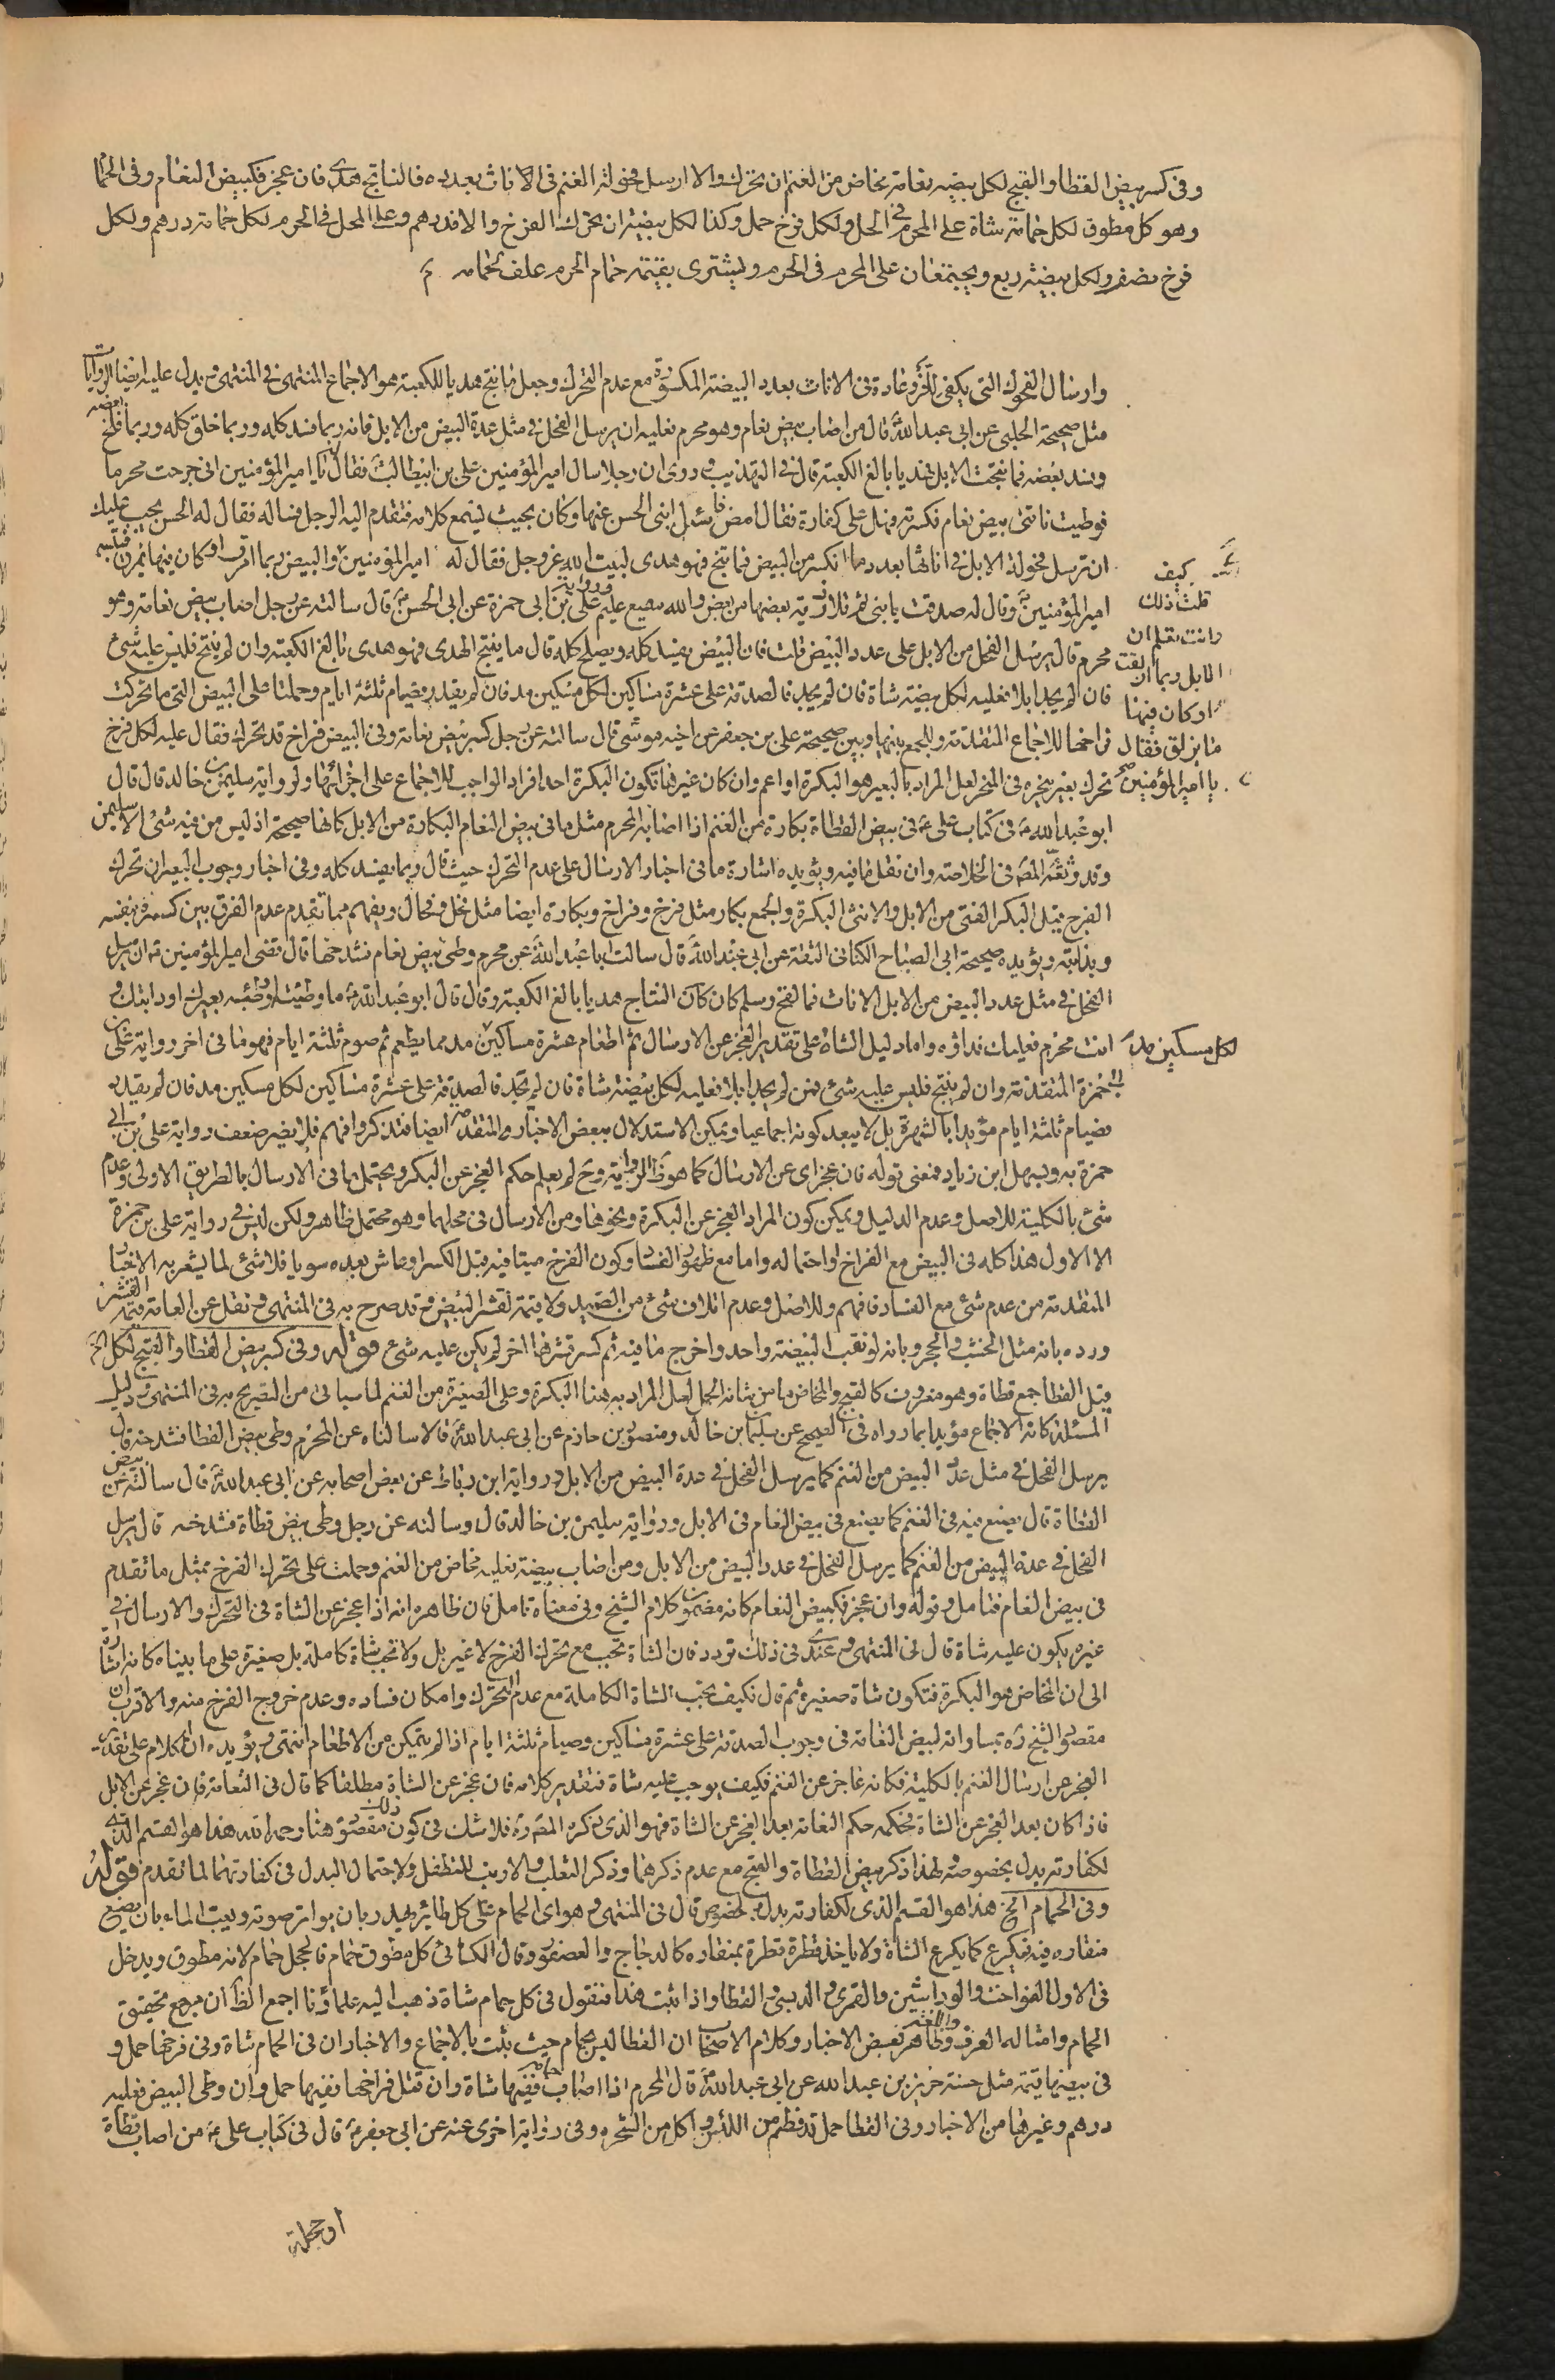 وفى كسر بيض القطا والقبج لكل بيضة نعامة مخاض من الغنم ان تحرك والا ارسل فحولة الغنم فى الاناث بعدده فالناتج هدى فان عجز فكبيض النعام وفى الحمام
وهو كل مطوق لكل حمامة شاة على المحرم فى الحل ولكل فرخ حمل وكذا لكل بيضة ان تحرك الفرخ والا فدرهم وعلى المحل فى الحرم لكل حمامة درهم ولكل
فرخ نصف ولكل بيضة ربع ويجتمعان على المحرم فى الحرم ويشترى بقيمة حمام الحرم علف لحمامه
وارسال الفحولة التى يكفى عادة فى الاناث بعدد البيضة المكسورة مع عدم التحرك وجعل ما ينتج هديا للكعبة هو الاجماع المنتهى فى المنتهى ويدل عليه ايضا الروايات
مثل صحيحة الحلبى عن ابى عبد الله قال من اصاب بيض نعام وهو محرم فعليه ان يرسل الفحل فى مثل عدة البيض من الابل فانه ربما فسد كله وربما خلق كله وربما صلح بعضه
وفسد بعضه فما نتجت الابل فهديا بالغ الكعبة قال فى التهذيب وروى ان رجلا سال امير المؤمنين على بن ابيطالب فقال يا امير المؤمنين انى خرجت محرما
فوطيت ناقتى بيض نعام فكسرته فهل على كفارة فقال امض فاسئل ابنى الحسن عنها وكان بحيث يسمع كلامه فتقدم اليه الرجل فساله فقال له الحسن يجب عليك
ان ترسل فحولة الابل فى اناثها بعدد ما انكسر من البيض فما نتج فهو هدى لبيت الله عز وجل فقال له امير المؤمنين
كيف
قلت ذلك
وانت تعلم ان
الابل ربما ازلقت
او كان فيها
ما يزلق فقال
يا امير المؤمنين
والبيض ربما امرق او كان فيها ما يمرق فتبسم
امير المؤمنين وقال له صدقت يا بنى ثم تلا ذرية بعضها من بعض والله سميع عليم ورواية على بن ابى حمزة عن ابى الحسن قال سالته عن رجل اصاب بيض نعامة وهو
محرم قال يرسل الفحل من الابل على عدد البيض قلت فان البيض يفسد كله ويصلح كله قال ما ينتج الهدى فهو هدى بالغ الكعبة وان لم ينتج فليس عليه شئ
فان لم يجد ابلا فعليه لكل بيضة شاة فان لم يجد فالصدقة على عشرة مساكين لكل مسكين مد فان لم يقدر فصيام ثلثة ايام وحملتا على البيض التى ما تحركت
فراخها للاجماع المتقدمة وللجمع بينها وبين صحيحة على بن جعفر عن اخيه موسى قال سالته عن رجل كسر بيض نعامة وفى البيض فراخ قد تحرك فقال عليه لكل فرخ
تحرك بعير ينحره فى المنحر لعل المراد بالبعير هو البكرة او اعم وان كان غيرها فتكون البكرة احد افراد الواجب للاجماع على اجزائها ولرواية سليمن بن خالد قال قال
ابو عبد الله فى كتاب على فى بيض القطاة بكارة من الغنم اذا اصابه المحرم مثل ما فى بيض النعام البكارة من الابل كانها صحيحة اذ ليس من فيه شئ الا سليمن
وقد وثقه المصنف فى الخلاصة وان نقل ما فيه ويؤيده اشارة ما فى اخبار الارسال على عدم التحرك حيث قال ربما يفسد كله وفى اخبار وجوب البعير ان تحرك
الفرخ قيل البكر الفتى من الابل والانثى البكرة والجمع بكار مثل فرخ وفراخ وبكارة ايضا مثل فحل وفحال ويفهم مما تقدم عدم الفرق بين كسره بنفسه
وبدابته ويؤيده صحيحة ابى الصباح الكنانى الثقة عن ابى عبد الله قال سالت ابا عبد الله عن محرم وطى بيض نعام فشدخها قال قضى امير المؤمنين ان يرسل
الفحل فى مثل عدد البيض من الابل الاناث فما لقح وسلم كان النتاج هديا بالغ الكعبة وقال قال ابو عبد الله ما وطيته او وطئه بعيرك او دابتك و
انت محرم فعليك فداؤه واما دليل الشاة على تقدير العجز عن الارسال ثم اطعام عشرة مساكين مد مما يطعم ثم صوم ثلثة ايام فهو ما فى اخر رواية على بن
لكل مسكين مد
ابى حمزة المتقدمة وان لم ينتج فليس عليه شئ فمن لم يجد ابلا فعليه لكل بيضة شاة فان لم يجد فالصدقة على عشرة مساكين لكل مسكين مد فان لم يقدر
فصيام ثلثة ايام مؤيدا بالشهرة بل لا يبعد كونه اجماعيا ويمكن الاستدلال ببعض الاخبار المتقدمة ايضا فتذكر وافهم فلا يضر ضعف رواية على بن ابى
حمزة به وبسهل ابن زياد فمعنى قوله فان عجز اى عن الارسال كما هو ظ الرواية وح لم يعلم حكم العجز عن البكر ويحتمل بما فى الارسال بالطريق الاولى وعدم
شئ بالكلية للاصل وعدم الدليل ويمكن كون المراد العجز عن البكرة ونحوها ومن الارسال فى محلهما وهو محتمل ظاهر ولكن ليس فى رواية على بن حمزة
الا الاول هذا كله فى البيض مع الفراخ او احتماله واما مع ظهور الفساد وكون الفرخ ميتا فيه قبل الكسر او عاش بعده سويا فلا شئ لما يشعر به الاخبار
المتقدمة من عدم شئ مع الفساد فافهم وللاصل وعدم اتلاف شئ من الصيد ولا قيمة لقشر البيض وقد صرح به فى المنتهى ونقل عن العامة قيمة القشر
ورده بانه مثل الخشب والحجر وبانه لو نقب البيضة واحد واخرج ما فيه ثم كسر قشرها اخر لم يكن عليه شئ قوله وفى كسر بيض القطا والقبج لكل الخ
قيل القطا جمع قطاة وهو معروف كالقبج والمخاض ما من شانه الحمل لعل المراد به هنا البكرة وعلى الصغيرة من الغنم لما سياتى من التصريح به فى المنتهى ودليل
المسئلة كانه الاجماع مؤيدا بما رواه فى الصحيح عن سليمان بن خالد ومنصور بن حازم عن ابى عبد الله قالا سالناه عن المحرم وطى بيض القطا فشدخه قال
يرسل الفحل فى مثل عدد البيض من الغنم كما يرسل الفحل فى عدة البيض من الابل ورواية ابن رباط عن بعض اصحابه عن ابى عبد الله قال سالته عن بيض
القطاة قال يصنع فيه فى الغنم كما يصنع فى بيض النعام فى الابل ورواية سليمن بن خالد قال وسالته عن رجل وطى بيض قطاة فشدخه قال يرسل
الفحل فى عدة البيض من الغنم كما يرسل الفحل فى عدد البيض من الابل ومن اصاب بيضة فعليه مخاض من الغنم وحملت على تحرك الفرخ بمثل ما تقدم
فى بيض النعام فتامل وقوله وان عجز فكبيض النعام كانه مضمون كلام الشيخ وفى معناه تامل فان ظاهره انه اذا عجز عن الشاة فى التحرك والارسال فى
غيره يكون عليه شاة قال فى المنتهى وعندى فى ذلك تردد فان الشاة تجب مع تحرك الفرخ لا غير بل ولا تجب شاة كاملة بل صغيرة على ما بيناه كانه اشارة
الى ان المخاض هو البكرة فتكون شاة صغيرة ثم قال فكيف تجب الشاة الكاملة مع عدم التحرك وامكان فساده وعدم خروج الفرخ منه والاقرب ان
مقصود الشيخ ره تساوانه لبيض النعامة فى وجوب الصدقة على عشرة مساكين وصيام ثلثة ايام اذا لم يتمكن من الاطعام انتهى ويؤيده ان الكلام على تقدير
العجز عن ارسال الغنم بالكلية فكانه عاجز عن الغنم فكيف يوجب عليه شاة فتقدير كلامه فان عجز عن الشاة مطلقا كما قال فى النعامة فان عجز عن الابل
فاذا كان بعد العجز عن الشاة فحكمه حكم النعامة بعد العجز عن الشاة فهو الذى ذكره المصنف ره فلا شك فى كون ذلك مقصودهنا رحمه الله هذا هو القسم الذى
لكفارته بدل بخصوصه ولهذا ذكر بيض القطاة والقبج مع عدم ذكرهما وذكر الثعلب والارنب للتطفل ولاحتمال البدل فى كفارتهما لما تقدم قوله
وفى الحمام الخ هذا هو القسم الذى لكفارته بدل بخصوص قال فى المنتهى و هو اى الحمام على كل طائر يهدر بان يواتر صوته ويعب الماء بان يضع
منقاره فيه فيكرع كما يكرع الشاة ولا ياخذ قطرة قطرة بمنقاره كالدجاج والعصفور وقال الكسائى كل مطوق حمام فالحجل حمام لانه مطوق ويدخل
فى الاول الفواخت والوراشين والقمرى والدبسى والقطا واذا ثبت هذا فنقول فى كل حمام شاة ذهب اليه علماؤنا اجمع الظ ان مرجع تحقيق
الحمام وامثاله العرف واللغة وظاهر بعض الاخبار وكلام الاصحاب ان القطا ليس بحمام حيث بثت بالاجماع والاخبار ان فى الحمام شاة وفى فرخها حمل و
فى بيضها قيمة مثل حسنة حريز بن عبد الله عن ابى عبد الله قال المحرم اذا اصاب حمامة ففيها شاة وان قتل فراخها ففيها حمل وان وطى البيض فعليه
درهم وغيرها من الاخبار وفى القطا حمل قد فطم من اللبن واكل من الشجر وفى رواية اخرى عنه عن ابى جعفر قال فى كتاب على من اصاب قطاة
او حجلة